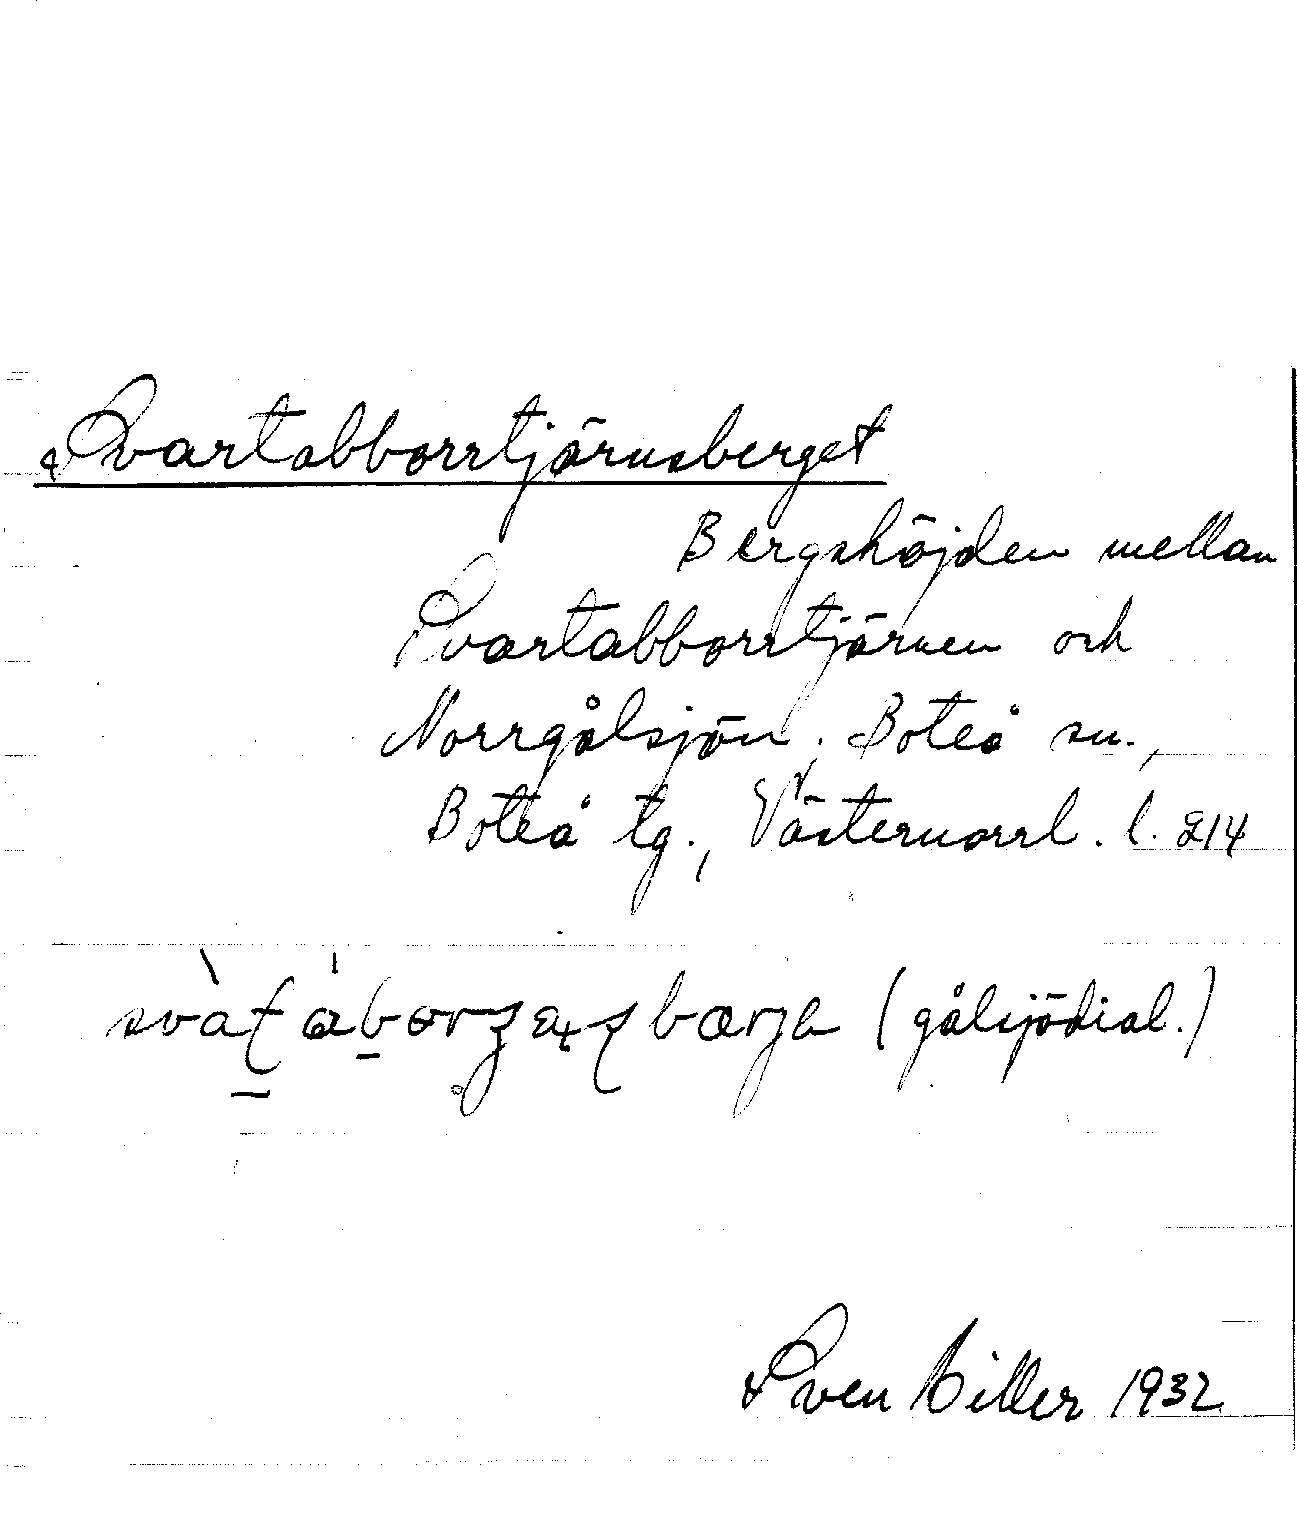 Svartabborrtjärnsberget
Bergshöjden mellan
Svartabborrtjärnen och
Norrgålsjön. Boteå sn.,
Boteå tg., Västernorrl. l. 214
(gålsjödial.)
Sven 1932